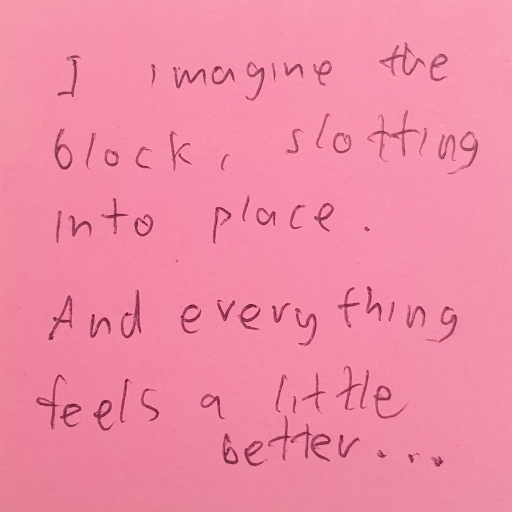 I imagine the
block, slotting
into place.
And everything
feels a little
better...